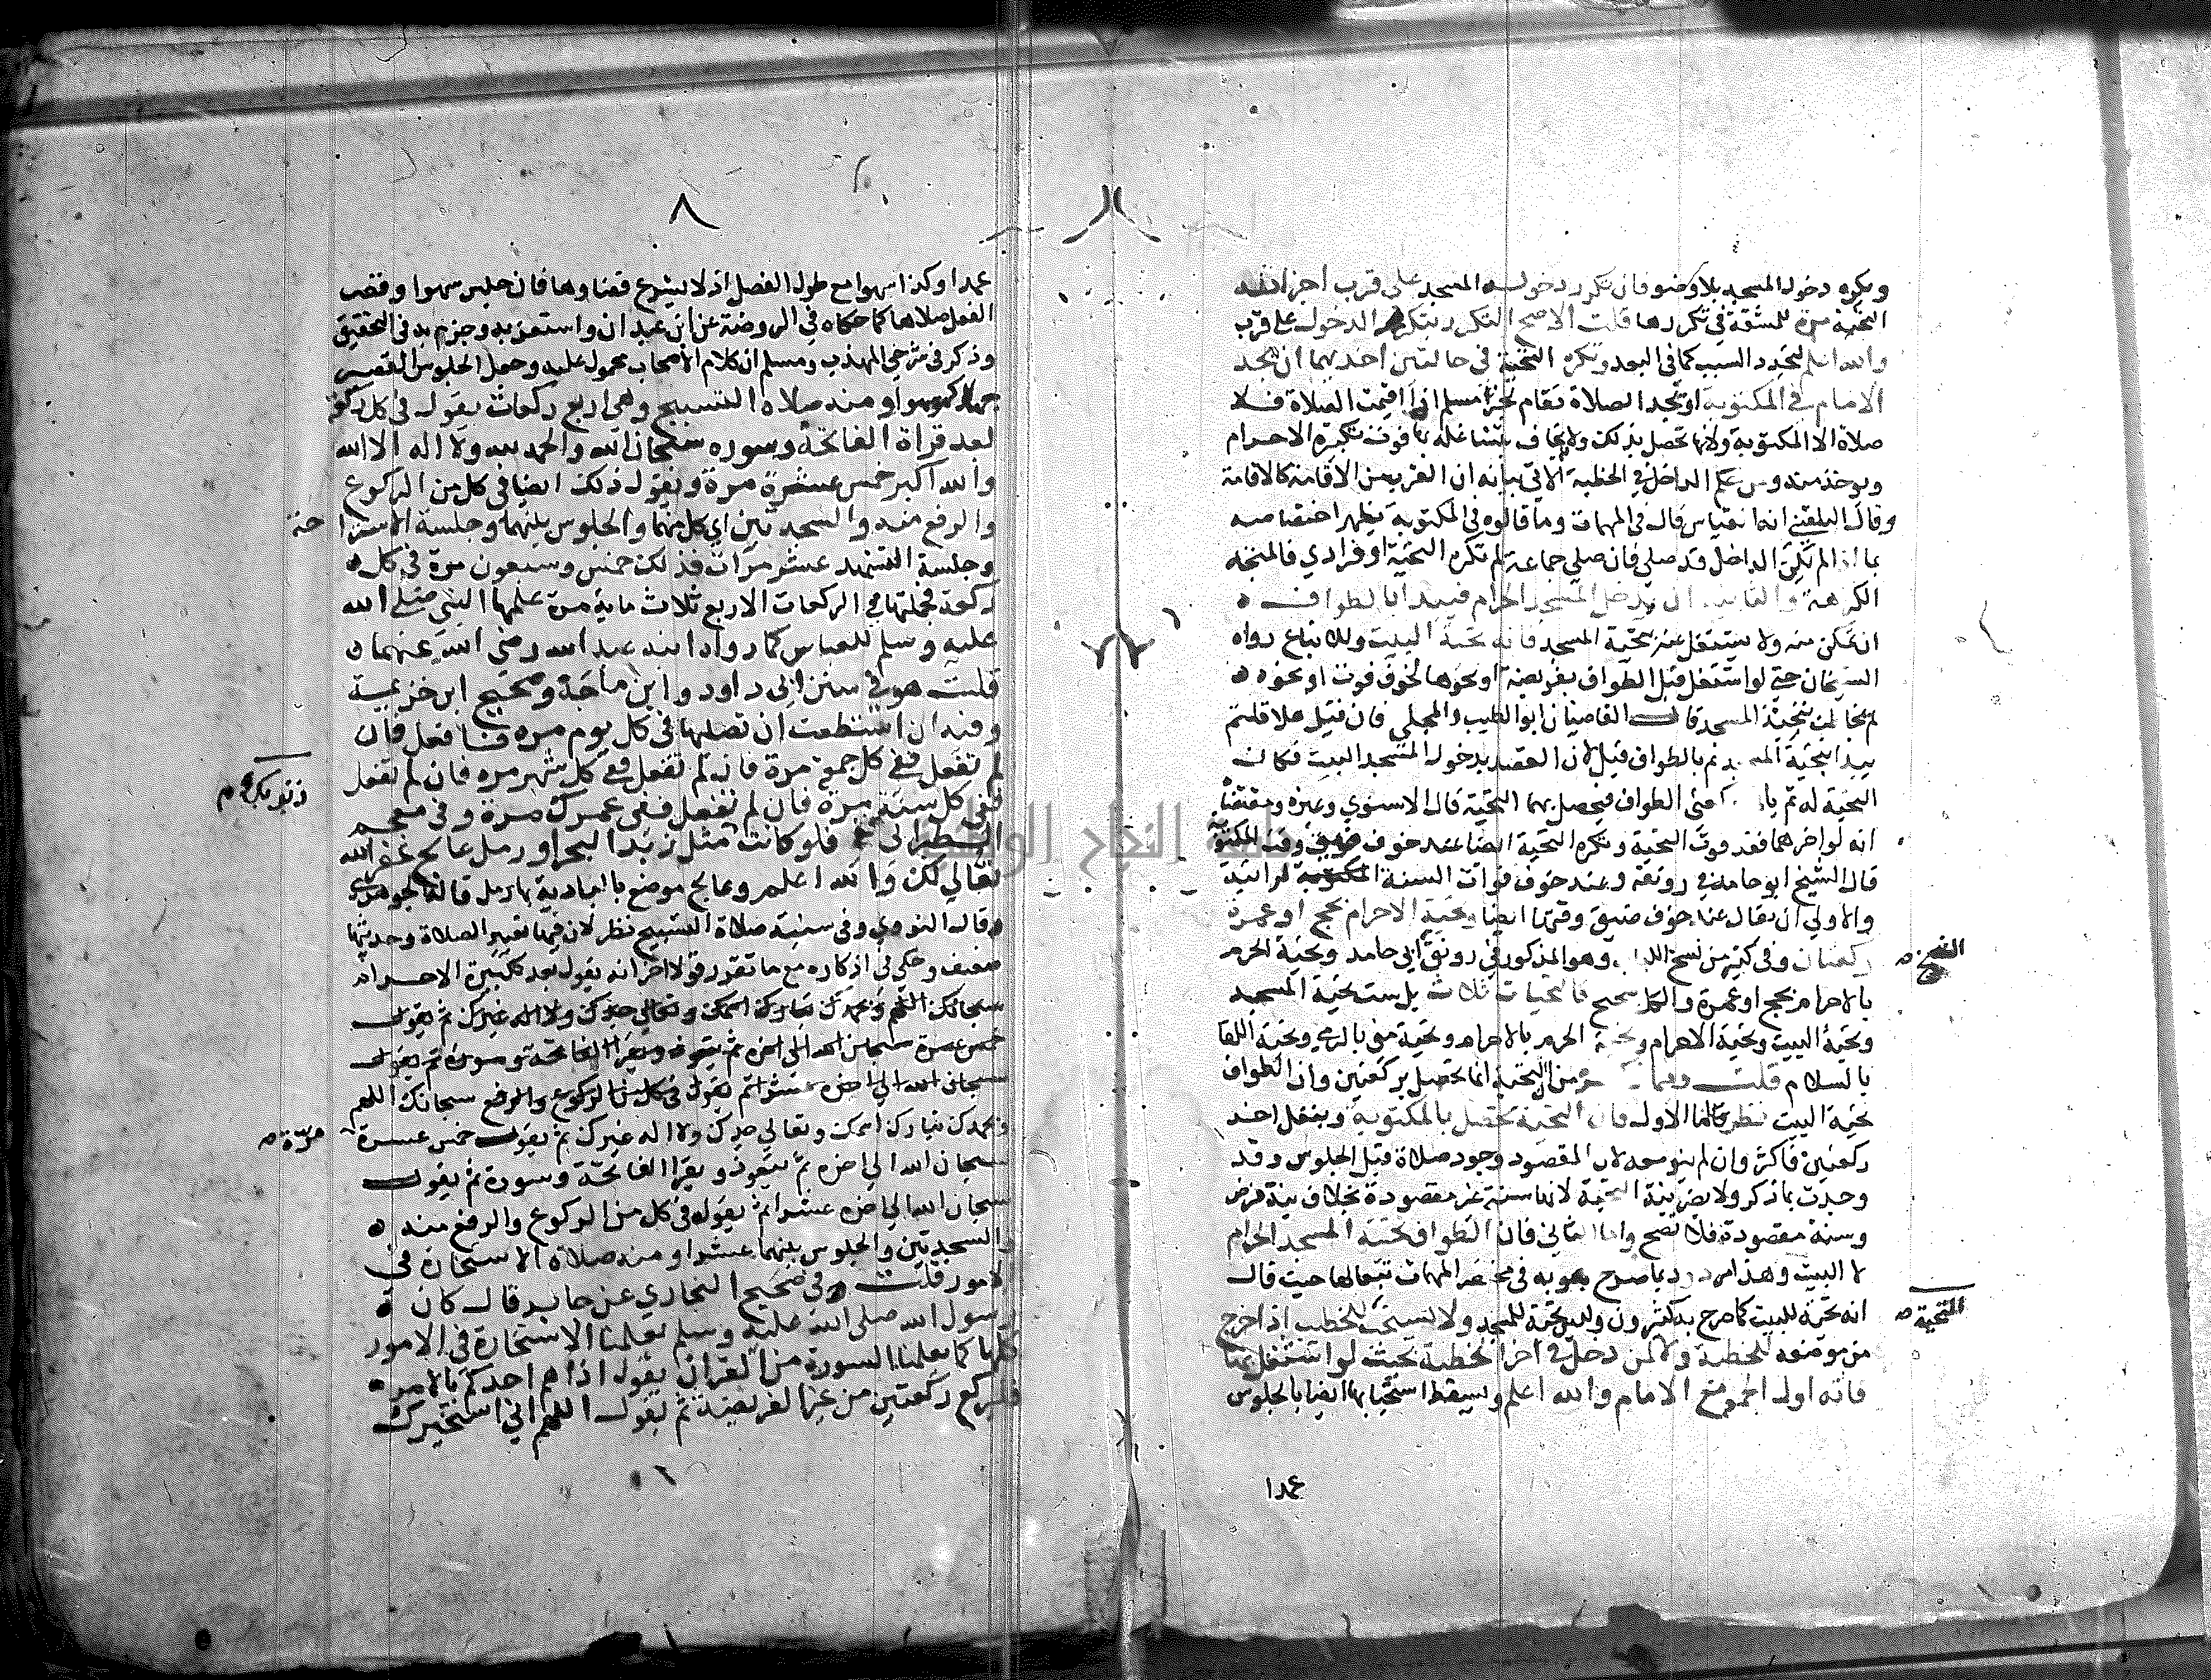 ويكره دخول المسجد بلا وضو فان تكرر دخوله المسجد على قرب اجزأته
التحية مرة للمشقة في تكررها قلت الاصح التكرر بتكرر الدخول على قرب
والله اعلم لتجدد السبب كما في البعد وتكره التحية في حالتين احديهما ان يجد
الامام في المكتوبة او يجد الصلاة تقام لخبر مسلم اذا اقيمت الصلاة فلا
صلاة الا المكتوبة ولانها تحصل بذلك ولا يخاف بتشاغله بها فوت تكبيرة الاحرام
ويوخذ منه ومن حكم الداخل في الخطبة الاتي بيانه ان القرب من الاقامة كالاقامة
وقال البلقيني انه القياس قال في المهمات وما قالوه في المكتوبة يظهر اختصاصه
بما اذا لم يكن الداخل قد صلى فان صلى جماعة لم تكره التحية او فرادي فالمتجه
الكراهة والثانية ان يدخل المسجد الحرام فيبدا بالطواف
ان تمكن منه ولا يشتغل عنه بتحية المسجد فانه تحية البيت وللاتباع رواه
الشيخان حتى لو اشتغل قبل الطواف بفريضة او نحوها لخوف فوت او نحوه
لم يخاطب بتحية المسجد قال القاضيان ابو الطيب والمجلي فان قيل هلا قلتم
يبدا بتحية المسجد ثم بالطواف قيل لان القصد بدخول المسجد البيت فكانت
التحية له ثم با الطواف فيحصل بهما التحية قال الاسنوي وغيره ومقتضاه
انه لو اخرهما فقد فوت التحية وتكره التحية ايضا عند خوف فوت وقت المكتوبة
قال الشيخ ابو حامد في رونقه وعند خوف فوات السنة الراتبة
والاولى ان يقال عند خوف ضيق وقتهما ايضا وتحية الاحرام بحج او عمرة
ركعتان وفي كثير من نسخ اللباب وهو المذكور في رونق ابي حامد وتحية الحرم
الفتح صح
بالاحرام بحج او عمرة والكل صحيح فالتحيات ثلاث بل ست تحية المسجد
وتحية البيت وتحية الاحرام وتحية الحرم بالاحرام وتحية منى بالرمي وتحية اللقا
بالسلام قلت وفيما من ان التحية انما تحصل بركعتين وان الطواف
تحية البيت نظر اما الاول فان التحية تحصل بالمكتوبة وبنفل احد
ركعتين فاكثر وان لم ينو معه لان المقصود وجود صلاة قبل الجلوس وقد
وجدت بما ذكر ولا يضر بنية التحية لانها سنة غير مقصودة بخلاف نية فرض
وسنة مقصودة فلا تصح واما الثاني فان الطواف تحية المسجد الحرام
لا البيت وهذا مردود بما صرح هو به في مختصر المهمات تبعا لها حيث قال
انه تحية للبيت كما صرح به كثيرون وليس تحية للمسجد ولا تستحب للخطيب اذا خرج
التحية صح
من موضعه للخطبة ولا لمن دخل في اخر الخطبة بحيث لو اشتغل بها
فاته اول الجمعة مع الامام والله اعلم ويسقط استحبابها ايضا بالجلوس
عمدا
٨
عمدا وكذا سهوا مع طول الفصل اذ لا يشرع قضاوها فان جلس سهوا وقصر
الفصل صلاها كما حكاه في الروضة عن ابن عبدان واستغربه وجزم به في التحقيق
وذكر في شرحي المهذب ومسلم ان كلام الاصحاب محمول عليه وجعل الجلوس القصير
جهلا كهو سهوا ومنه صلاة التسبيح وهي اربع ركعات يقول في كل ركعة
بعد قراة الفاتحة وسورة سبحان الله والحمد لله ولا اله الا الله
والله اكبر خمس عشرة مرة ويقول ذلك ايضا في كل من الركوع
والرفع منه والسجدتين اي كل منهما والجلوس بينهما وجلسة الاستراحة
وجلسة التشهد عشر مرات فذلك خمس وسبعون مرة في كل
ركعة فجملتها في الركعات الاربع ثلاث ماية مرة علمها النبي صلى الله
عليه وسلم للعباس كما رواه ابنه عبد الله رضي الله عنهما
قلت هو في سنن ابي داود وابن ماجة وصحيح ابن خزيمة
وفيه ان استطعت ان تصليها في كل يوم مرة فافعل فان
لم تفعل ففي كل جمعة مرة فان لم تفعل ففي كل شهر مرة فان لم تفعل
ففي كل سنة مرة فان لم تفعل ففي عمرك مرة وفي معجم
ذنوبك صح
الطبراني فلو كانت مثل زبد البحر او رمل عالج غفر الله
تعالي لك والله اعلم وعالج موضع بالبادية بها رمل قاله الجوهري
وقال النووي وفي سنية صلاة التسبيح نظر لان فيها تغيير الصلاة وحديثها
ضعيف وحكي في اذكاره مع ما تقرر قولا اخر انه يقول بعد تكبيرة الاحرام
سبحانك اللهم وبحمدك تبارك اسمك وتعالي جدك ولا اله غيرك ثم يقول
خمس عشرة سبحان الله الى اخره ثم يتعوذ ويقرا الفاتحة وسورة ثم يقول
سبحان الله الى اخره عشرا ثم يقول في كل من الركوع والرفع سبحانك اللهم
وبحمدك تبارك اسمك وتعالي جدك ولا اله غيرك ثم يقول خمس عشرة
مرة صح
سبحان الله الي اخره ثم يتعوذ ويقرا الفاتحة وسورة ثم يقول
سبحان الله الي اخره عشرا ثم يقوله في كل من الركوع والرفع منه
والسجدتين والجلوس بينهما عشرا ومنه صلاة الاستخارة في
الامور قلت وفي صحيح البخاري عن جابر قال كان
رسول الله صلى الله عليه وسلم يعلمنا الاستخارة في الامور
كلها كما يعلمنا السورة من القران يقول اذا هم احدكم بالامر
فليركع ركعتين من غير الفريضة ثم ليقول اللهم اني استخيرك